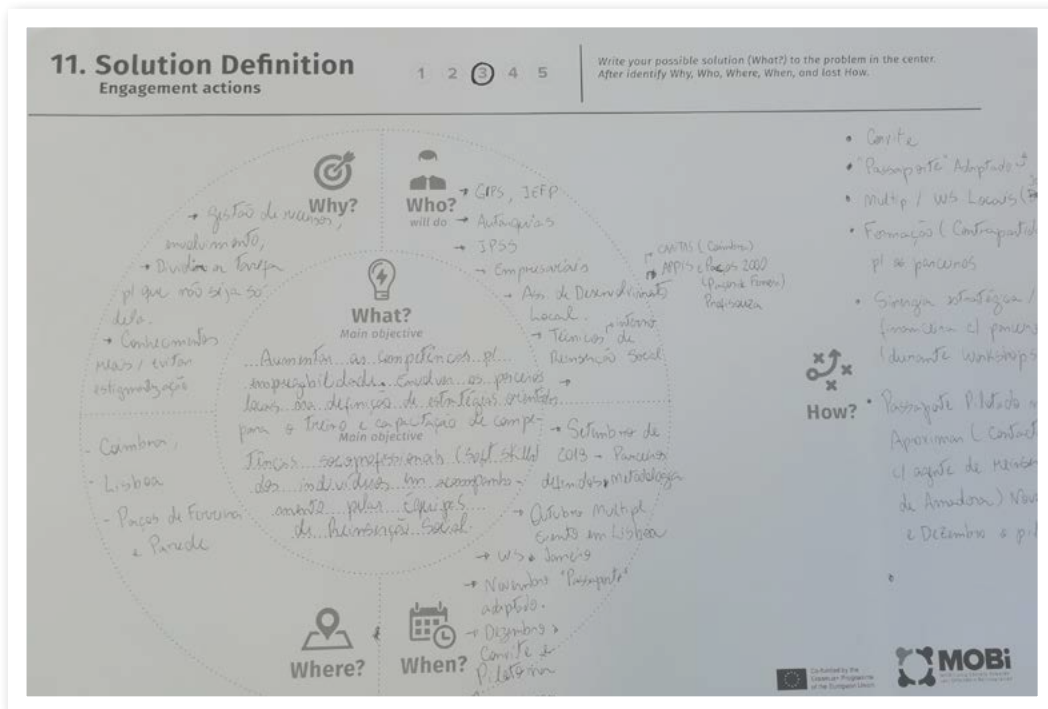 11. Solution Definition
Engagement actions
1 2 3 4 5
Write your possible solution (What?) to the problem in the center.
After identify Why, Who, Where, When, and last How.
Why?
→ Gestão de recursos,
envolvimento,
→ Dividir a Tarefa
p/ que não seja só
dela.
→ Conhecimentos
reais / evitar
estigmatização
Who?
will do
→ GIPS, IEFP
→ Autarquias
→ IPSS
→ Empresariais
→ Ass. de Desenvolvimento
Local.
→ Técnicos de
Reinserção Social
interno
CARITAS (Coimbra)
APPIS e Paços 2000
(Paços de Ferreira)
Profisousa
What?
Main objective
Aumentar as competências p/
empregabilidade. Envolver os parceiros
locais na definição de estratégias orientadas
para o treino e capacitação de compe-
Main objective
tências socioprofissionais (Soft skills)
dos indivíduos em acompanha-
mento pelas Equipas
de Reinserção Social
- Coimbra,
- Lisboa
- Paços de Ferreira
e Parede
Where?
When?
→ Setembro de
2019 - Parceiros
definidos, metodologia
→ Outubro Multipl
Evento em Lisboa
→ WS
→ Novembro "Passaporte"
adaptado.
→ Dezembro
Convite
How?
• Convite
• "Passaporte" Adaptado
• Multip / WS Locais
• Formação (Contrapartida
p/ os parceiros
• Sinergia estratégica /
financeira c/ parceiros
durante workshops
• Passaporte Pilotado
Aproximar (Contact
c/ agente de
de Amadora) Nov
e Dezembro
Co-funded by the
Erasmus+ Programme
of the European Union
MOBi